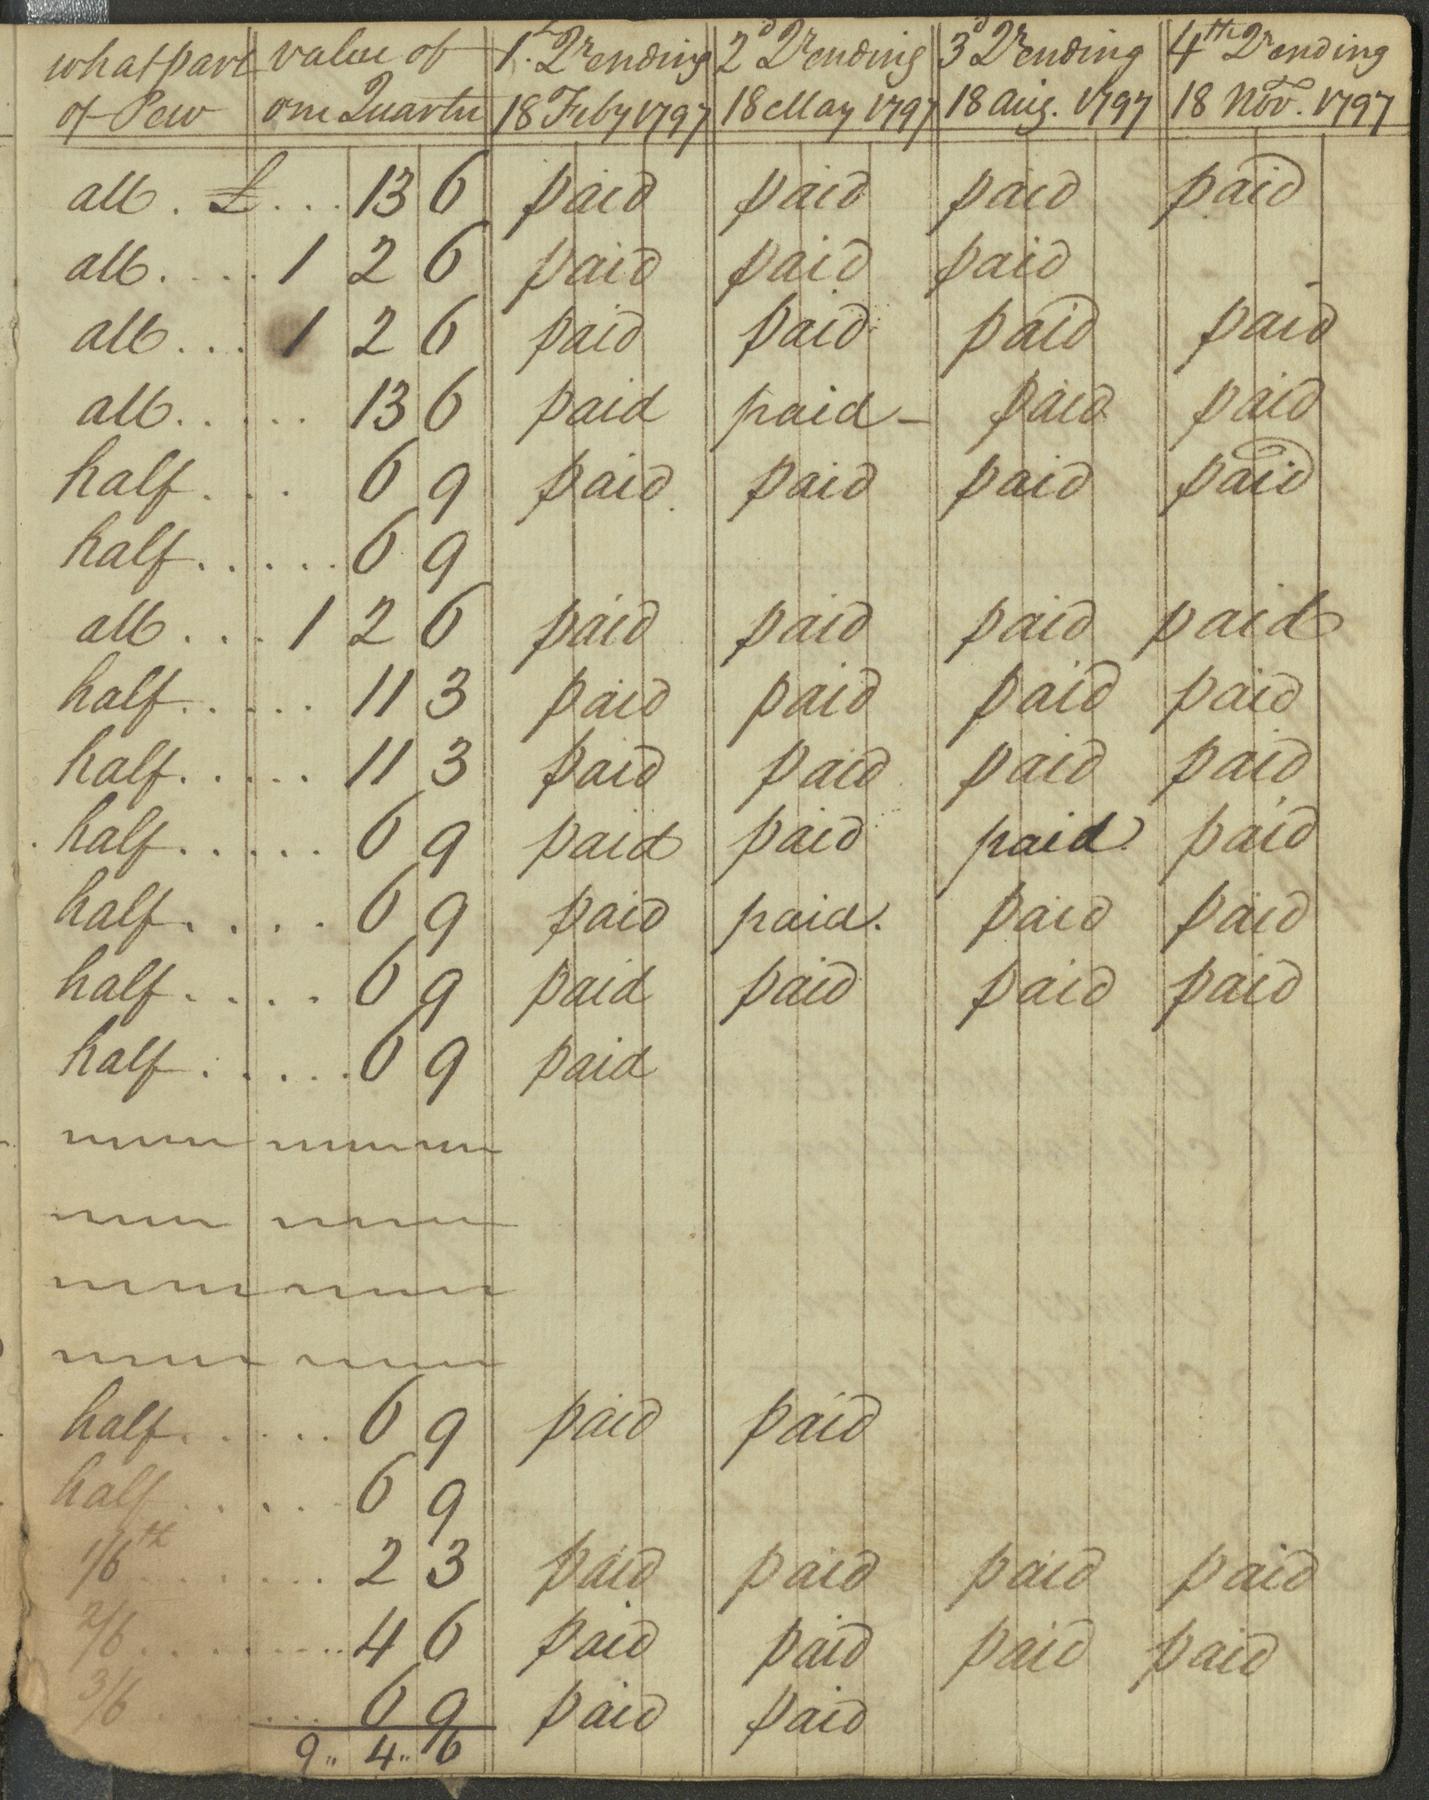 what part value of 1st Qr ending 2d Qr ending 3d Qr ending 4th Qr ending
of Pew one Quarter 18 Feby 1797 18 May 1797 18 Aug. 1797 18 Nov. 1797
all . £ . . . 13 6 paid paid paid paid
all . . . . 1 2 6 paid paid paid
all . . . 1 2 6 paid paid paid paid
all . . . . . 13 6 paid paid – paid paid
half . . . 6 9 paid paid paid paid
half . . . . . 6 9
all . . . 1 2 6 paid paid paid paid
half . . . . . 11 3 paid paid paid paid
half . . . . . 11 3 paid paid paid paid
half . . . . . 6 9 paid paid paid paid
half . . . . 6 9 paid paid. paid paid
half . . . . 6 9 paid paid paid paid
half . . . . . 6 9 paid
half . . . . . 6 9 paid paid
half . . . . . 6 9
1/6th . . . . . . 2 3 paid paid paid paid
2/6 . . . . . . . 4 6 paid paid paid paid
3/6 . . . . . . 6 9 paid paid
9 .. 4 .. 6